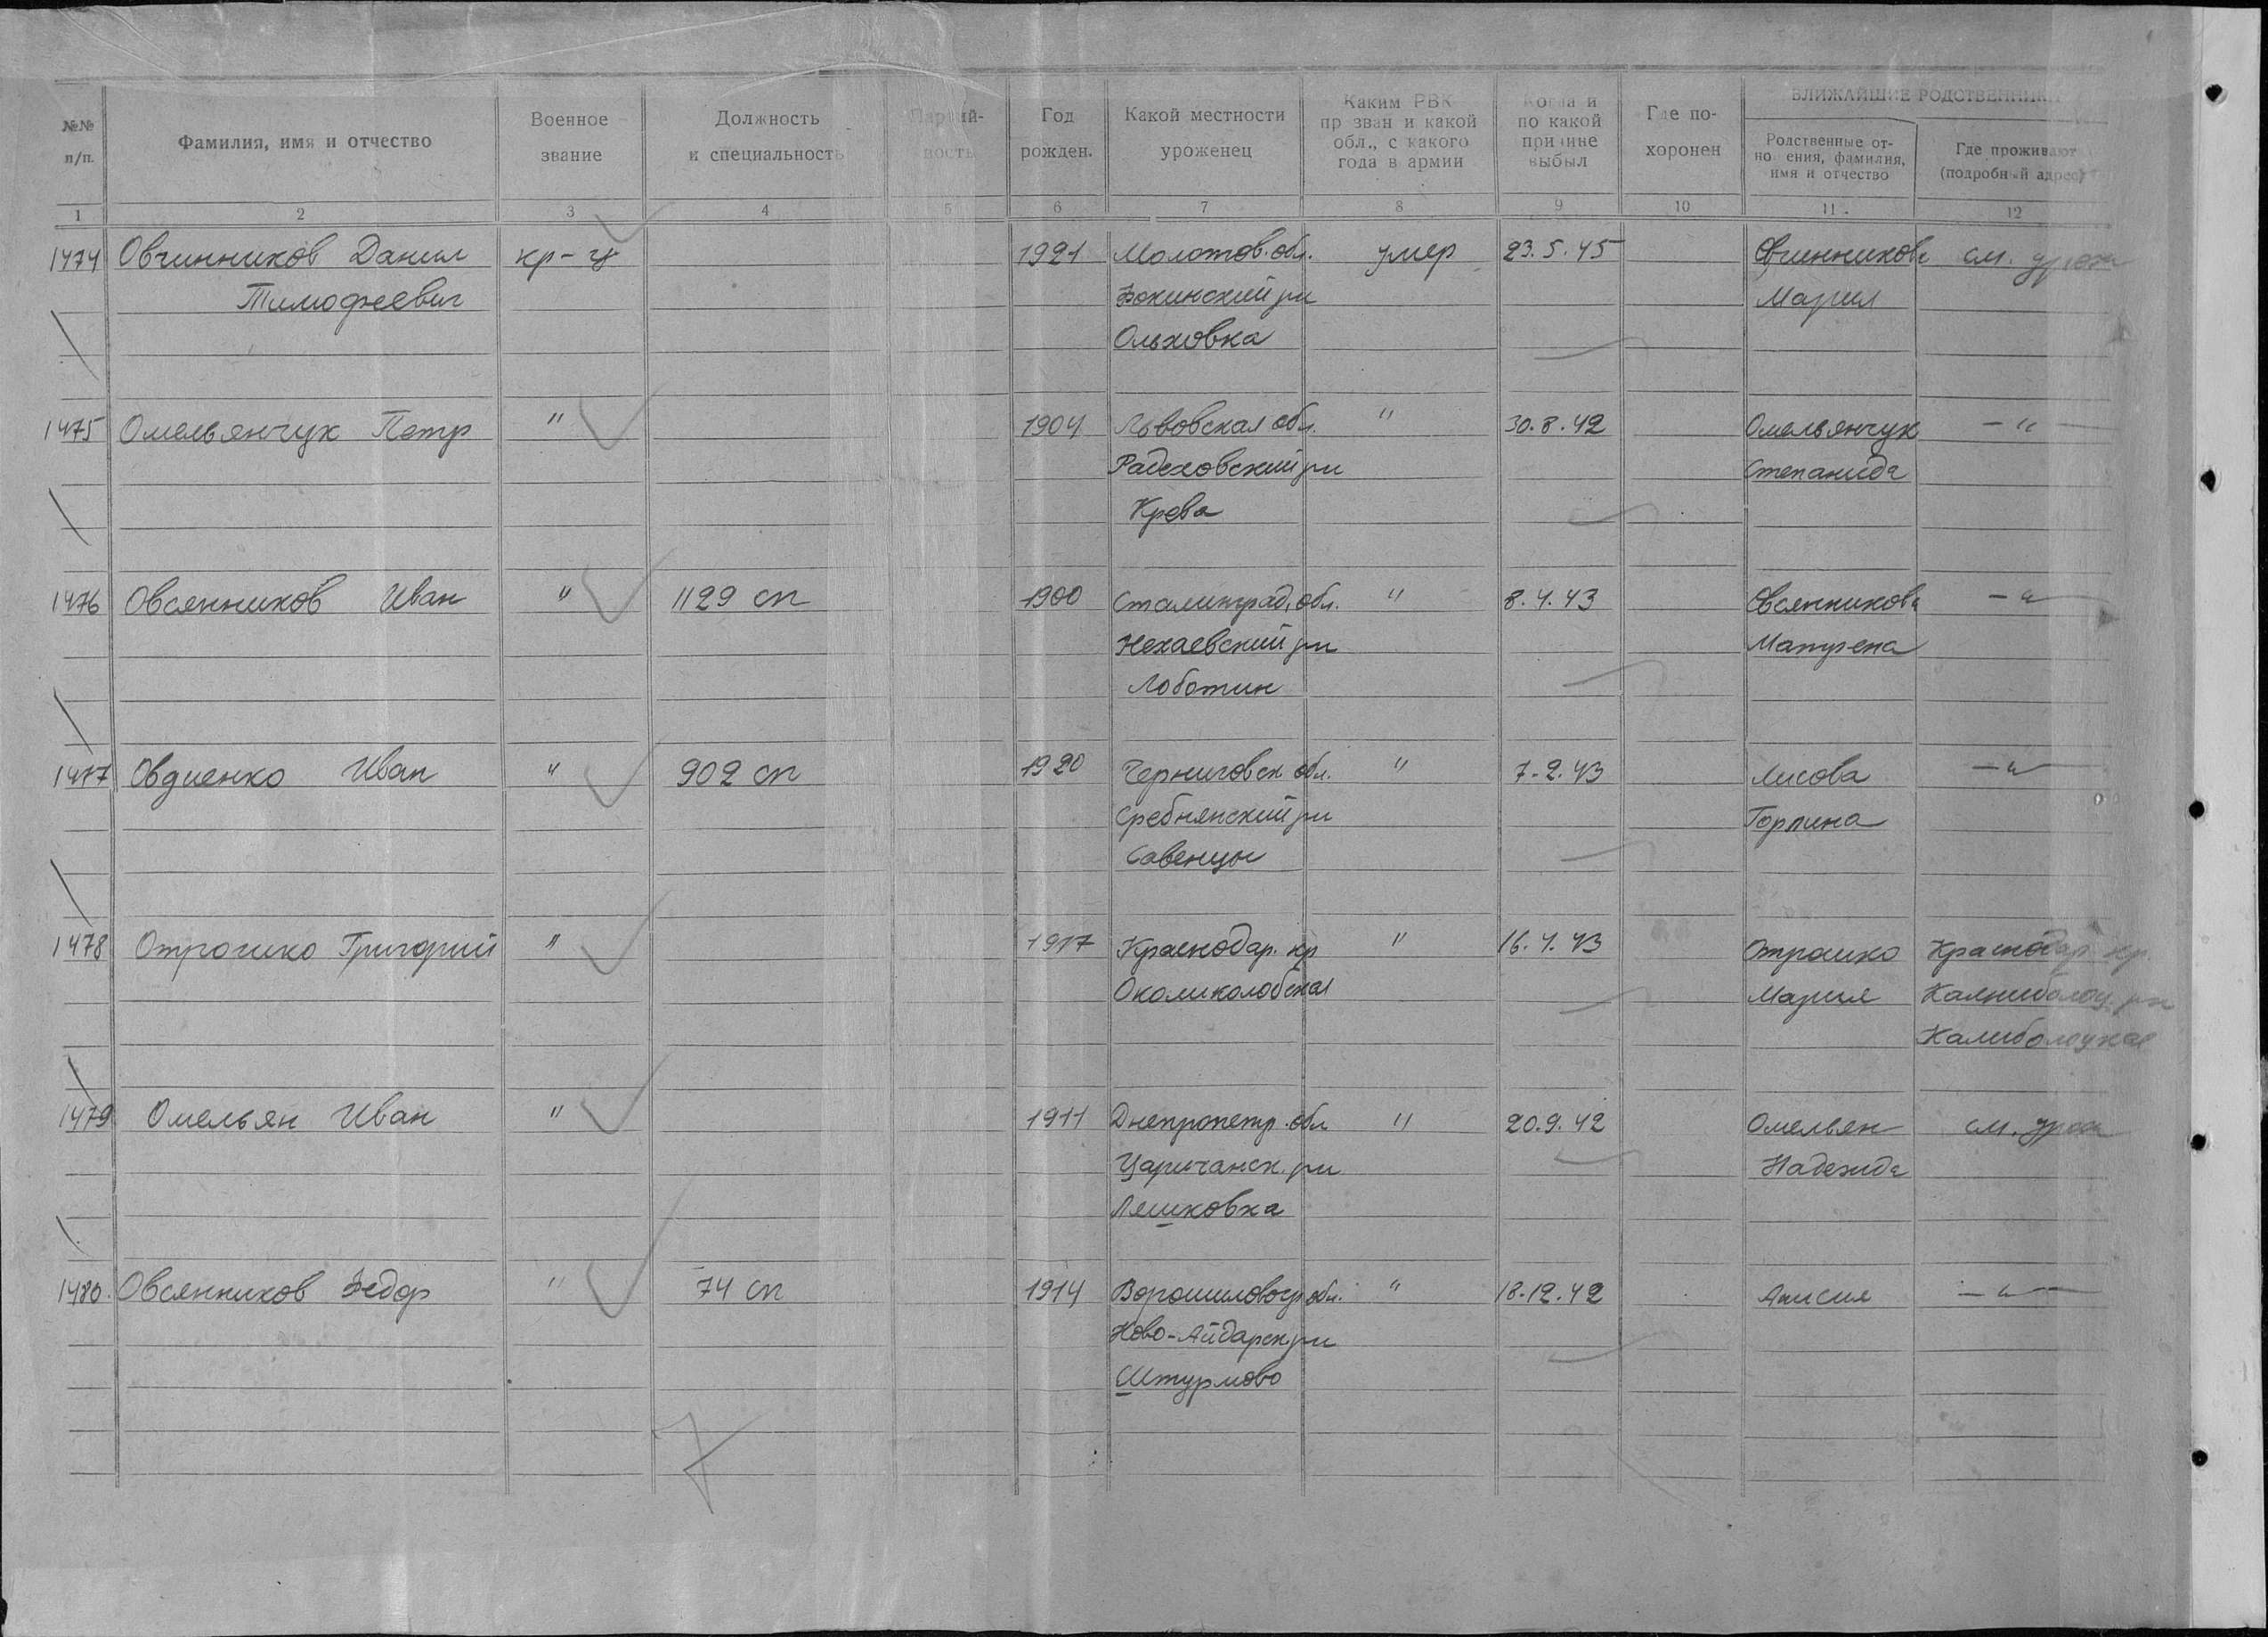 №№ п/п.
Фамилия, имя и отчество
Военное звание
Должность и специальность
Партий- ность
Год рожден.
Какой местности уроженец
Каким РВК призван и какой обл., с какого года в армии
Когда и по какой причине выбыл
Где по- хоронен
БЛИЖАЙШИЕ РОДСТВЕННИКИ
Родственные от- ношения, фамилия, имя и отчество
Где проживают (подробный адрес)
1 2 3 4 5 6 7 8 9 10 11 12
1474 Овчинников Данил кр-ц 1921 Молотов. обл. умер 23.5.45 Овчинникова см. урож
Тимофеевич Фокинский рн Мария
Ольховка
1475 Омельянчук Петр " 1904 Львовская обл. " 30.8.42 Омельянчук - " -
Радеховский рн Степанида
Крева
1476 Овсянников Иван " 1129 сп 1900 Сталинград. обл. " 8.4.43 Овсянникова - " -
Нехаевский рн Матрена
Лоботин
1477 Овдиенко Иван " 902 сп 1920 Черниговск обл. " 7.2.43 Лисова - " -
Сребнянский рн Горпина
Савенцы
1478 Отрошко Григорий " 1917 Краснодар. кр " 16.4.43 Отрошко Краснодар кр
Околиколобская Мария Калниболоц. рн
Калиболоцкая
1479 Омельян Иван " 1911 Днепропетр. обл " 20.9.42 Омельян см. урож
Царичанск. рн Надежда
Ляшковка
1480. Овсянников Федор " 74 сп 1914 Ворошиловогр обл. " 18.12.42 Анисия - " -
Ново-Айдарск рн
Штурмово
7